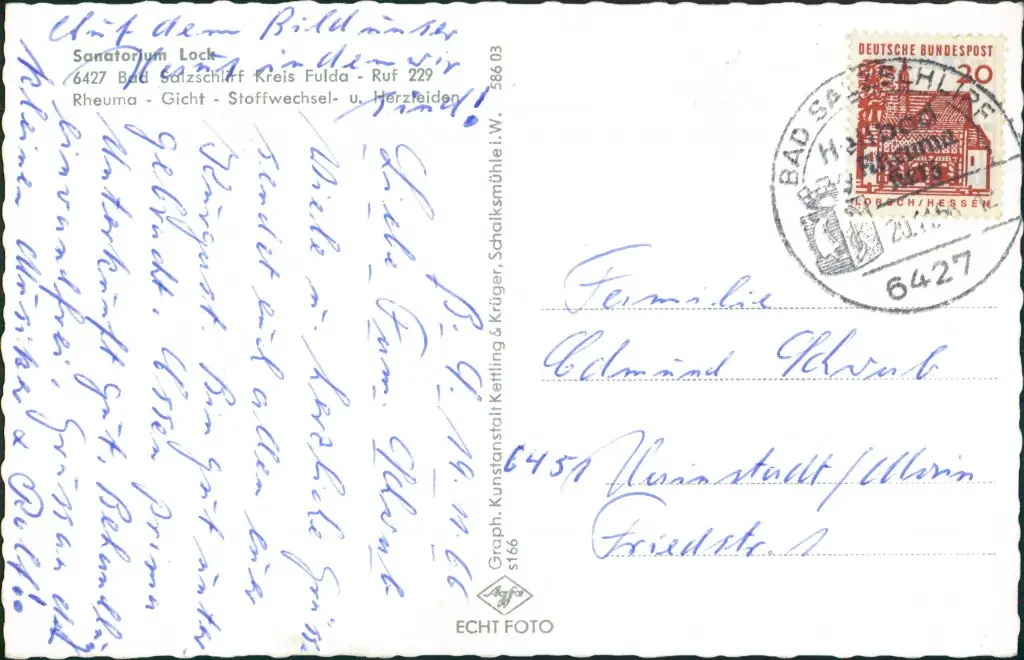 Auf dem Bild unser
Haus in dem wir
sind!
Sanatorium Lock
6427 Bad Salzschlirf Kreis Fulda - Ruf 229
Rheuma - Gicht - Stoffwechsel- u. Herzleiden
B. S. 19.11.66
Liebe Fam. Schwab
Viele u. herzliche Grüsse
sendet euch allen euer
Kurgast. Bin gut unter
gebracht. Essen prima
Unterkunft gut. Behandlg
einwandfrei. Grüssen
kleinen Musiker
Graph. Kunstanstalt Kettling & Krüger, Schalksmühle i.W. 586 03
s166
Agfa
ECHT FOTO
DEUTSCHE BUNDESPOST
20
LORSCH/HESSEN
BAD SALZSCHLIRF
Rheuma
Herz
6427
Familie
Edmund Schwab
6451 Mainstadt/Main
Friedstr. 1